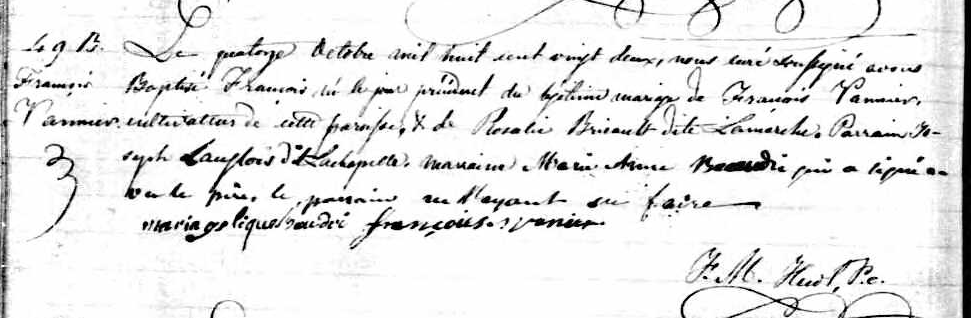 49 B. Le quatorze Octobre mil huit cent vingt deux, nous curé soussigné avons
François Baptisé François né le jour précédent du légitime mariage de François Vannier,
Vannier. cultivateur de cette paroisse, & de Rosalie Briault dite Lamarche. Parrain Jo-
seph Langlois dit Lachapelle. marraine Marie Anne Beaudri qui a signé a-
vec le père, le parrain ne l'ayant su faire
mariagelique baudri françois vanier
F. M. Huot, P.c.